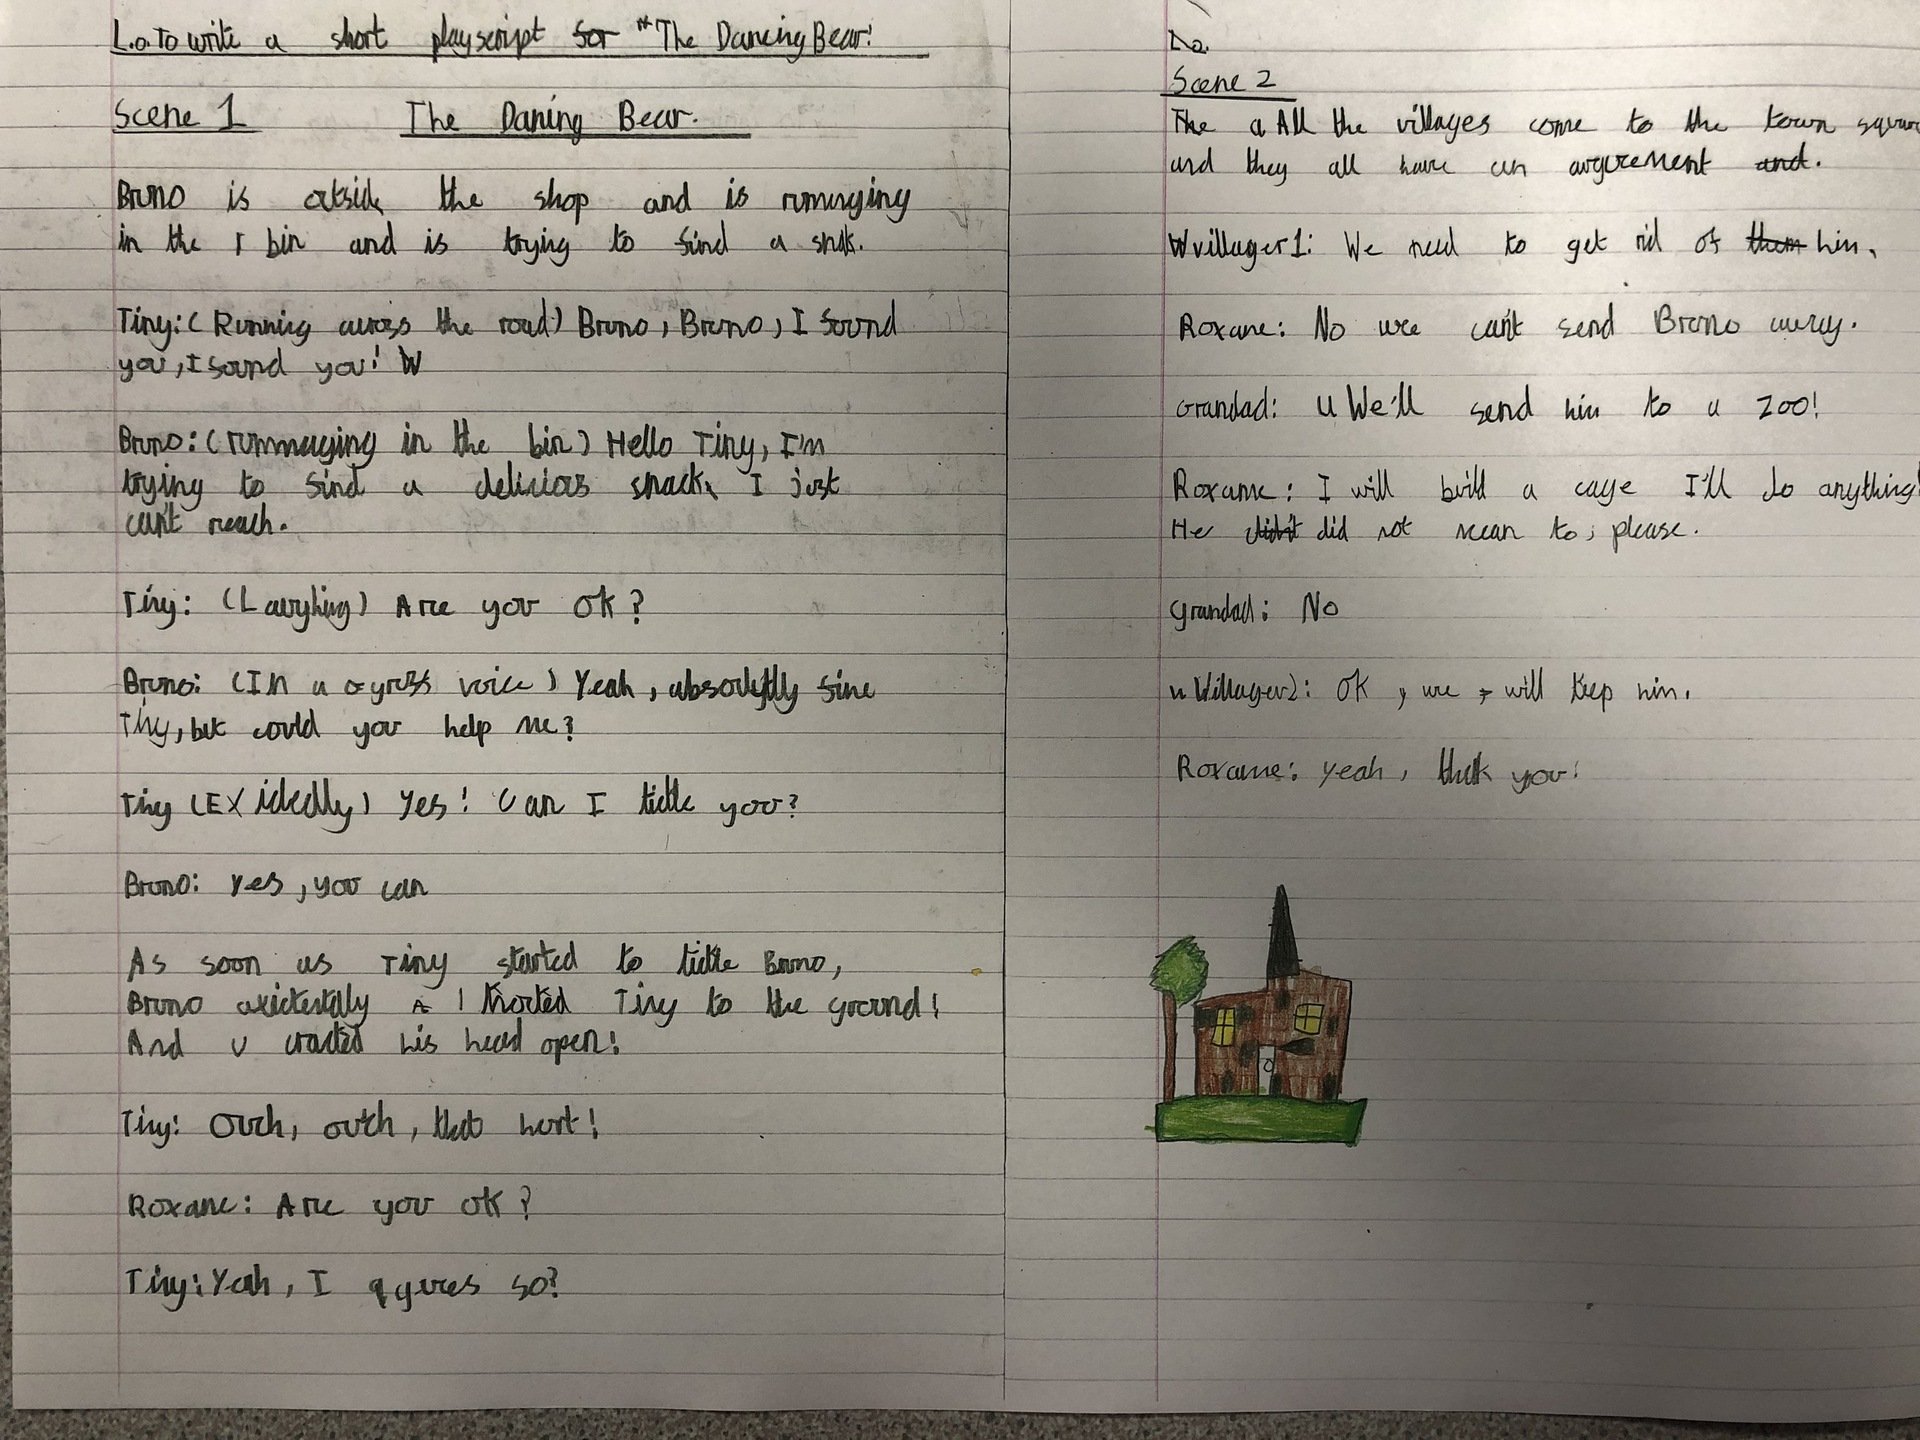 L.o. To write a short playscript for "The Dancing Bear!
Scene 1 The Daning Bear.
Bruno is outside the shop and is rumurging
in the bin and is trying to find a snak.
Tiny: (Running across the road) Bruno, Bruno, I found
you, I found you!
Bruno: (rummaging in the bin) Hello Tiny, I'm
trying to find a delicious snack, I just
can't reach.
Tiny: (Laughing) Are you OK?
Bruno: (In a voice) Yeah, fine
Tiny, but could you help me?
Tiny (Exidedly) Yes! Can I tickle you?
Bruno: Yes, you can
As soon as Tiny started to tickle Bruno,
Bruno Tiny to the ground!
And cracked his head open!
Tiny: Ouch, outch, that hurt!
Roxane: Are you OK?
Tiny: Yeah, I so?
Lo.
Scene 2
The All the villages come to the town square
and they all have an argurement and.
villager 1: We need to get rid of them him.
Roxane: No we can't send Bruno away.
Grandad: We'll send him to a zoo!
Roxane: I will build a cage I'll do anything!
He didn't did not mean to, please.
Grandad: No
Villager2: OK, we will keep him.
Roxane: yeah, thank you!